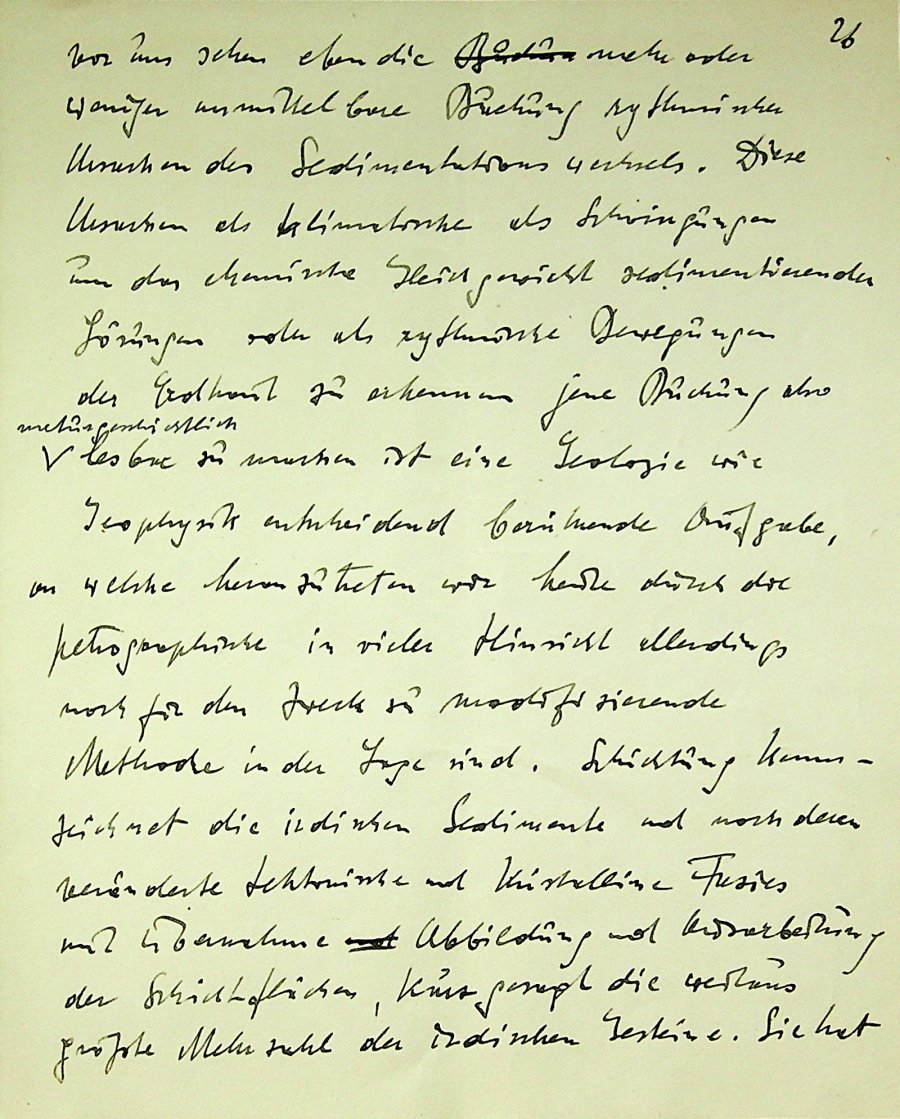 26
vor uns sehen eben die mehr oder
weniger unmittelbare Buchung rythmischer
Ursachen des Sedimentationswechsels. Diese
Ursachen als klimatische als Schwingungen
um das chemische Gleichgewicht sedimentierender
Lösungen oder als rythmische Bewegungen
der Erdhaut zu erkennen jene Buchung also
naturgeschichtlich
lesbar zu machen ist eine Geologie wie
Geophysik entscheidend berührende Aufgabe,
an welche heranzutreten wir heute durch die
petrographische in vieler Hinsicht allerdings
noch für den Zweck zu modifizierende
Methode in der Lage sind. Schichtung kenn-
zeichnet die irdischen Sedimente und noch deren
veränderte tektonische und kristalline Fazies
mit Übernahme Abbildung und Ausarbeitung
der Schichtflächen, kurz gesagt die weitaus
größte Mehrzahl der irdischen Gesteine. Sie hat